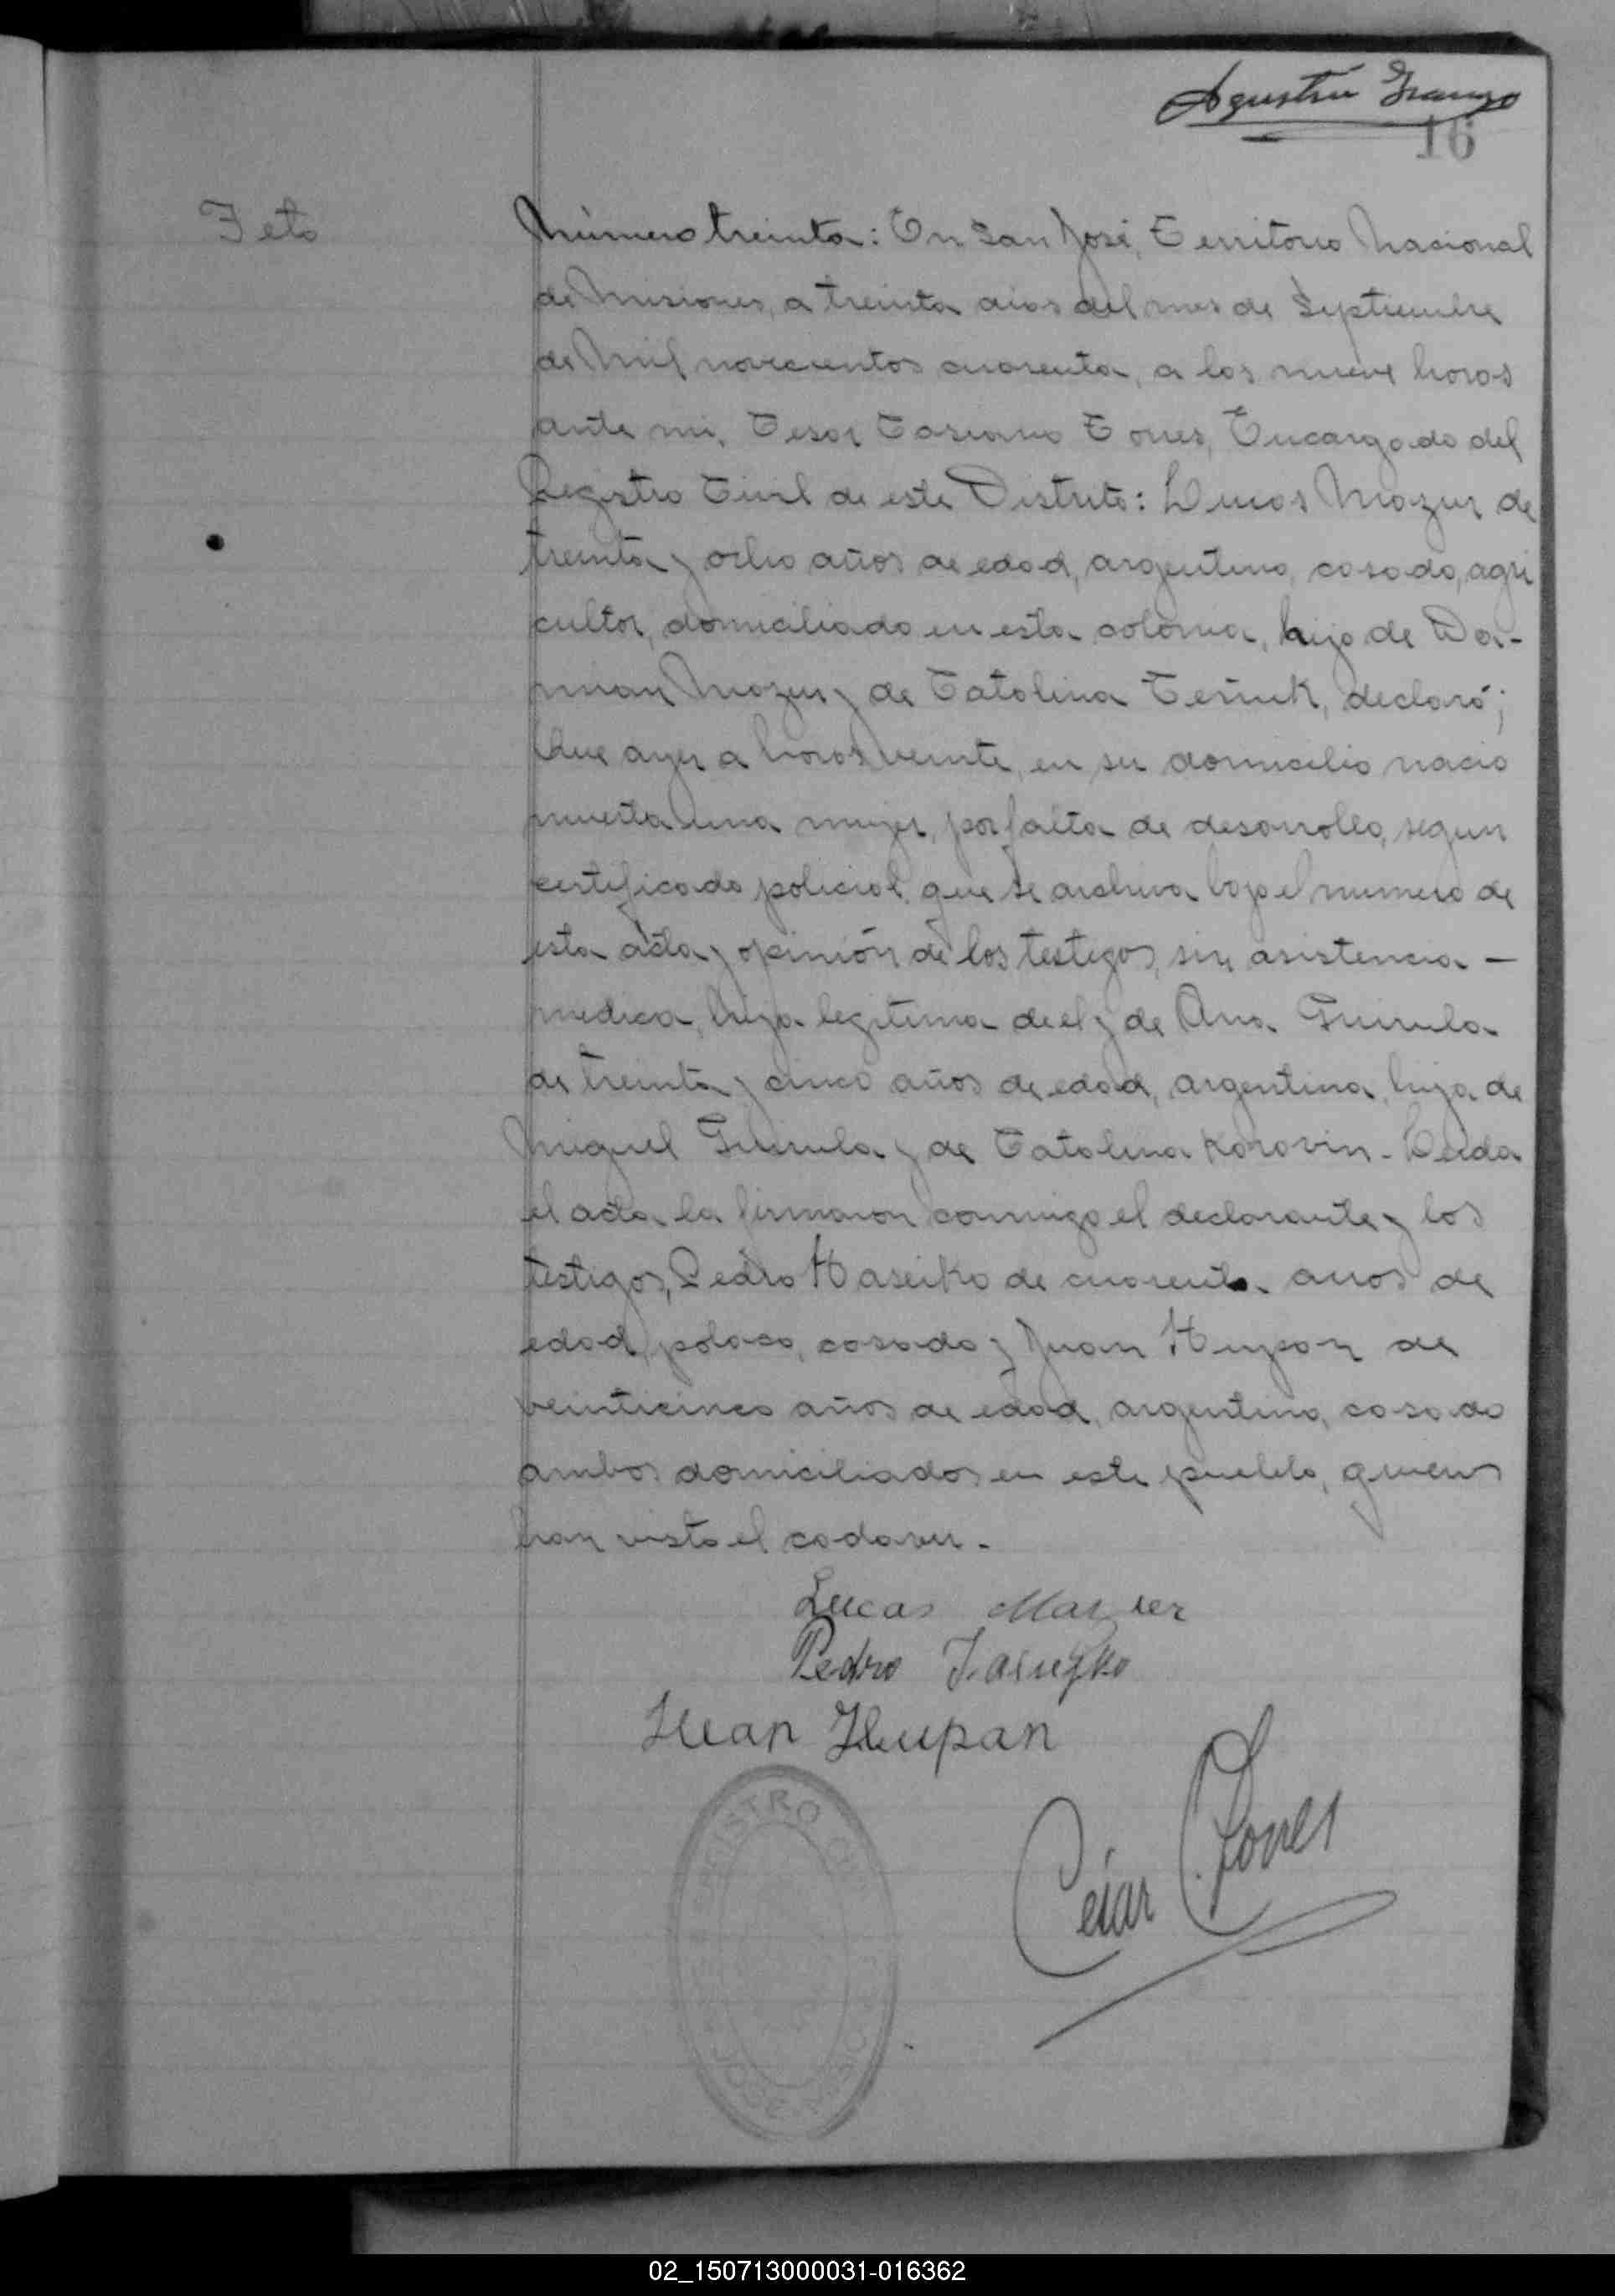 Agustín
16
Feto
Número treinta: En San José, Territorio Nacional
de Misiones, a treinta dias del mes de Septiembre
de Mil novecientos cuarenta, a las nueve horas
ante mi, Cesar Casiano Torres, Encargado del
Registro Civil de este Distrito: Lucas Mazur de
treinta y ocho años de edad, argentino, casado, agri
cultor, domiciliado en esta colonia, hijo de Da-
mian Mazur y de Catalina, declaró;
Que ayer a horas veinte, en su domicilio nacio
muerta una mujer, por falta de desarrollo, segun
certificado policial que se archiva bajo el numero de
esta acta y opinión de los testigos, sin asistencia -
medica, hija legitima de el y de Ana
de treinta y cinco años de edad, argentina, hija de
Miguel y de Catalina Korovin. Leida
el acta la firmaron conmigo el declarante y los
testigos, Pedro Haseiko de cuarenta años de
edad, polaco, casado y Juan Hupan de
veinticinco años de edad, argentino, casado
ambos domiciliados en este pueblo, quienes
han visto el cadaver.
Lucas Mazur
Pedro
Juan Hupan
César C. Torres
REGISTRO CIVIL
JOSE
02_150713000031-016362